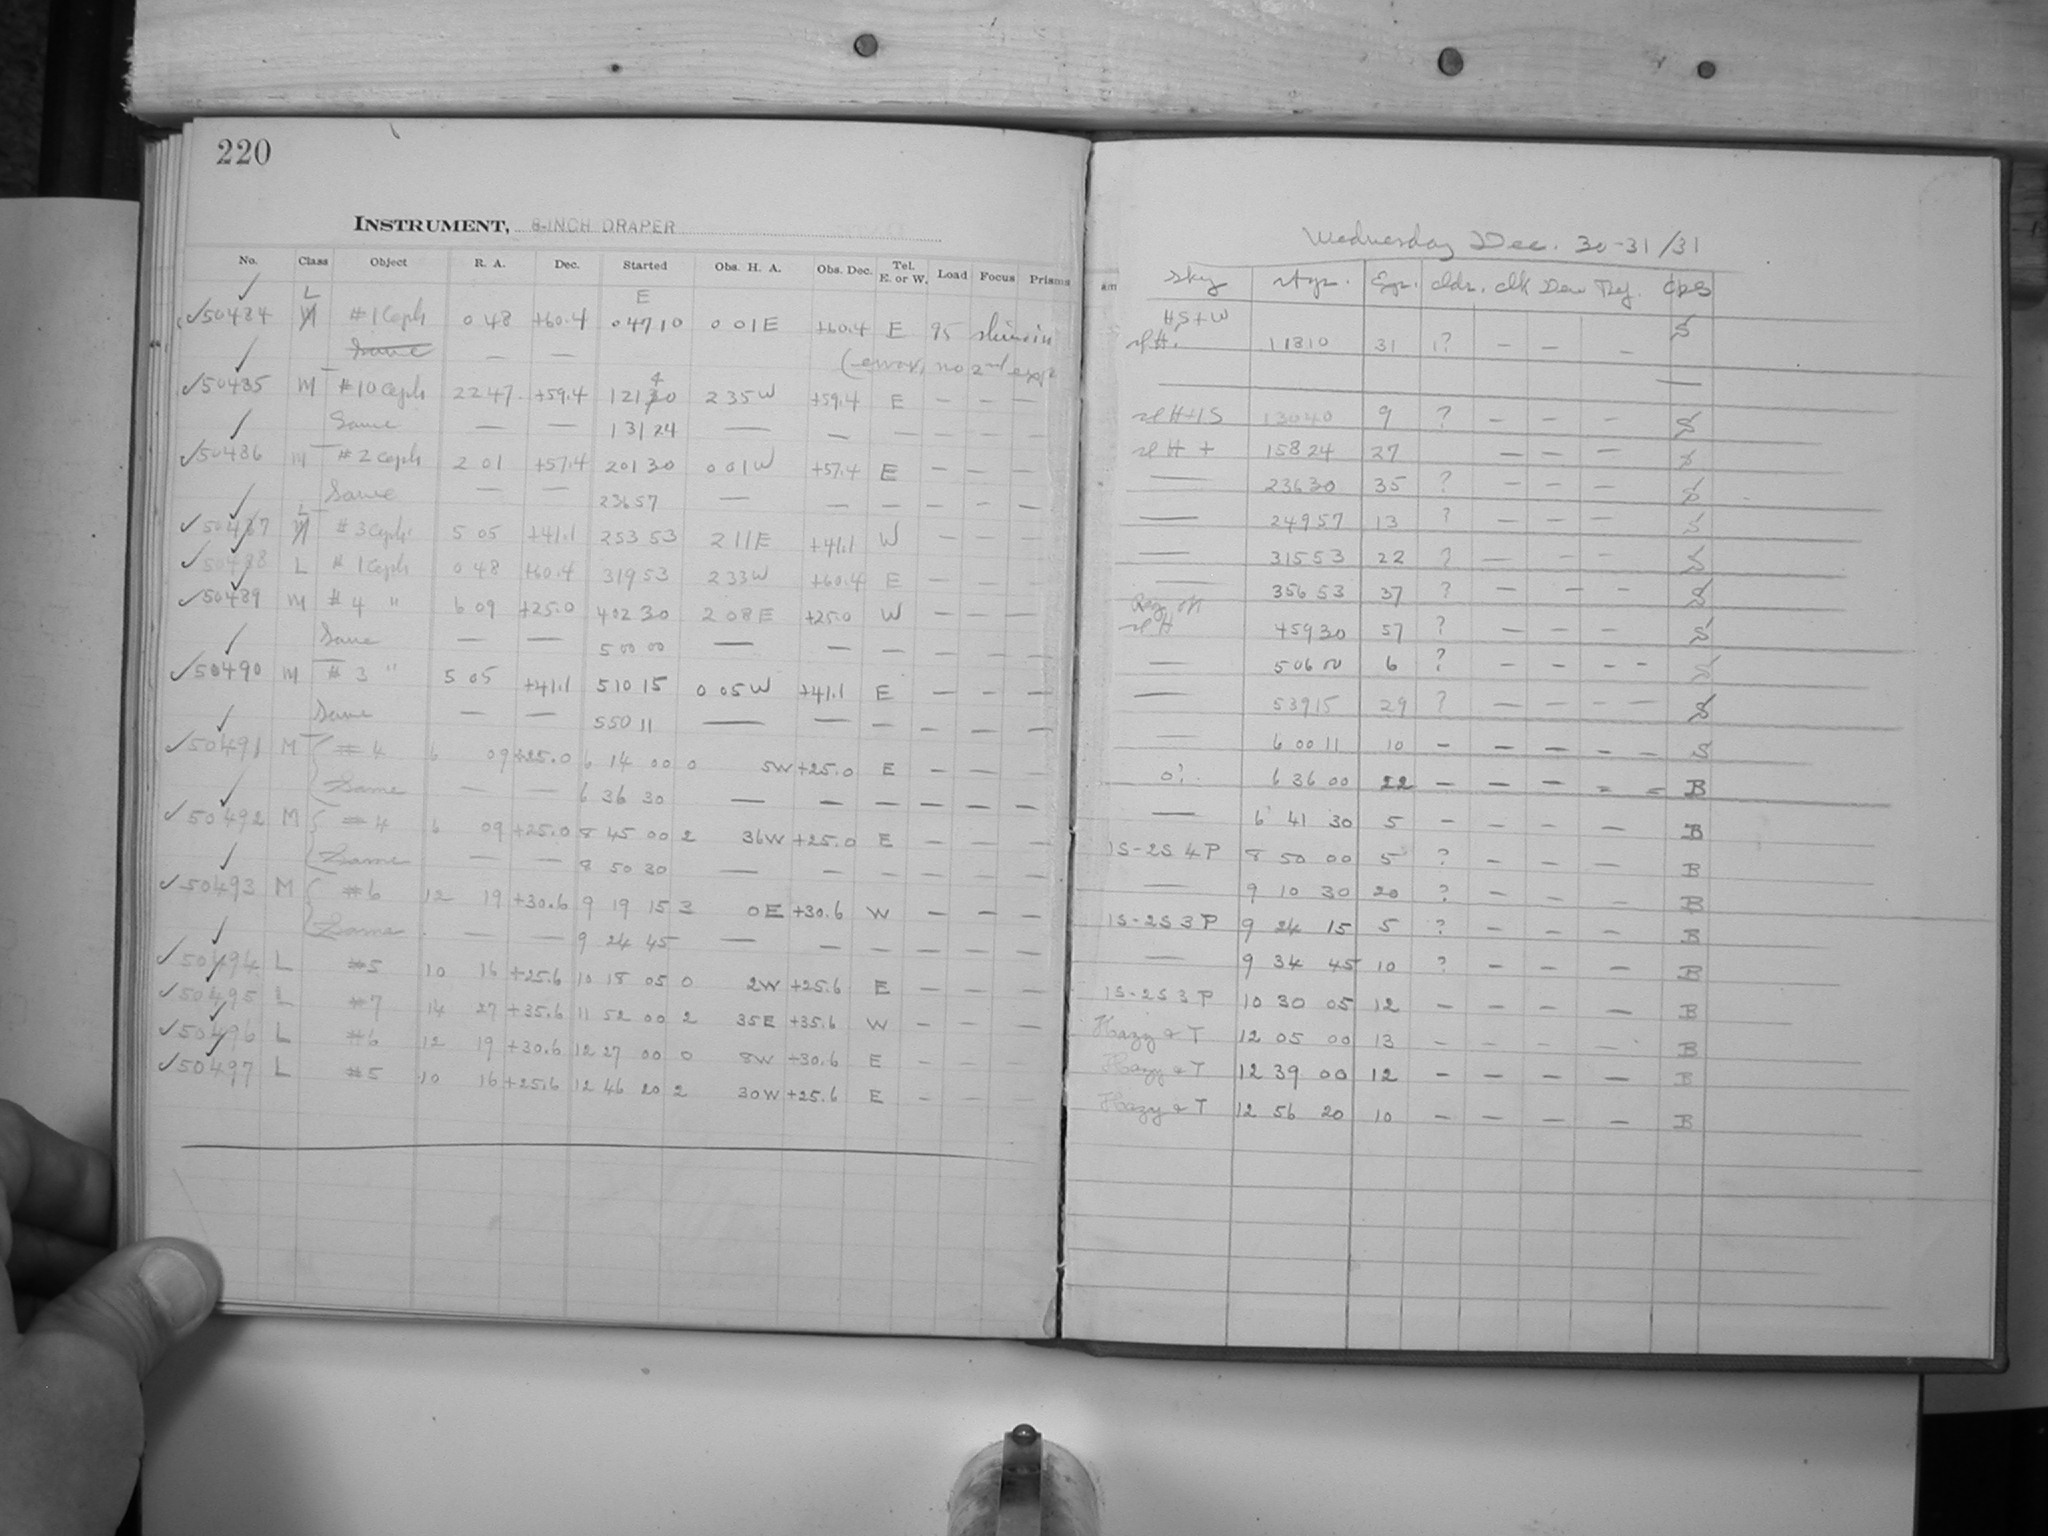 220
INSTRUMENT, 8-INCH DRAPER
No. Class Object R. A. Dec. Started Obs. H. A. Obs. Dec. Tel. E. or W. Load Focus Prisms
L E
✓50484 M #1 Ceph 0 48 +60.4 0 47 10 0 01 E +60.4 E 95
Same — — (error, no 2nd exp.
✓50485 M #10 Ceph 22 47 +59.4 1 21 40 2 35 W +59.4 E — — —
Same — — 1 31 24 — — — — — —
✓50486 M #2 Ceph 2 01 +57.4 2 01 30 0 01 W +57.4 E — — —
Same — — 2 36 57 — — — — — —
L
✓50487 M #3 Ceph 5 05 +41.1 2 53 53 2 11 E +41.1 W — — —
✓50488 L #1 Ceph 0 48 +60.4 3 19 53 2 33 W +60.4 E — — —
✓50489 M #4 " 6 09 +25.0 4 02 30 2 08 E +25.0 W — — —
Same — — 5 00 00 — — — — — —
✓50490 M #3 " 5 05 +41.1 5 10 15 0 05 W +41.1 E — — —
Same — — 5 50 11 — — — — — —
✓50491 M #4 6 09 +25.0 6 14 00 0 5W +25.0 E — — —
Same — — 6 36 30 — — — — — —
✓50492 M #4 6 09 +25.0 8 45 00 2 36W +25.0 E — — —
Same — — 8 50 30 — — — — — —
✓50493 M #6 12 19 +30.6 9 19 15 3 0E +30.6 W — — —
Same — — 9 24 45 — — — — — —
✓50494 L #5 10 16 +25.6 10 18 05 0 2W +25.6 E — — —
✓50495 L #7 14 27 +35.6 11 52 00 2 35E +35.6 W — — —
✓50496 L #6 12 19 +30.6 12 27 00 0 8W +30.6 E — — —
✓50497 L #5 10 16 +25.6 12 46 20 2 30W +25.6 E — — —
am
Wednesday Dec. 30-31/31
Sky Stp. Exp. Clds. Clk Dew Obs
HS+W
sl H. 1 18 10 31 ? — — — S
—
sl H+1S 1 30 40 9 ? — — — S
sl H + 1 58 24 27 — — — S
— 2 36 30 35 ? — — — S
— 2 49 57 13 ? — — — S
— 3 15 53 22 ? — — — S
— 3 56 53 37 ? — — — S
sl H 4 59 30 57 ? — — — S
— 5 06 00 6 ? — — — — S
— 5 39 15 29 ? — — — — S
— 6 00 11 10 — — — — — S
0? 6 36 00 22 — — — — — B
— 6 41 30 5 — — — — B
1S-2S 4P 8 50 00 5 ? — — — B
— 9 10 30 20 ? — — — B
1S-2S 3P 9 24 15 5 ? — — — B
— 9 34 45 10 ? — — — B
1S-2S 3P 10 30 05 12 — — — — B
Hazy & T 12 05 00 13 — — — — B
Hazy & T 12 39 00 12 — — — — B
Hazy & T 12 56 20 10 — — — — B